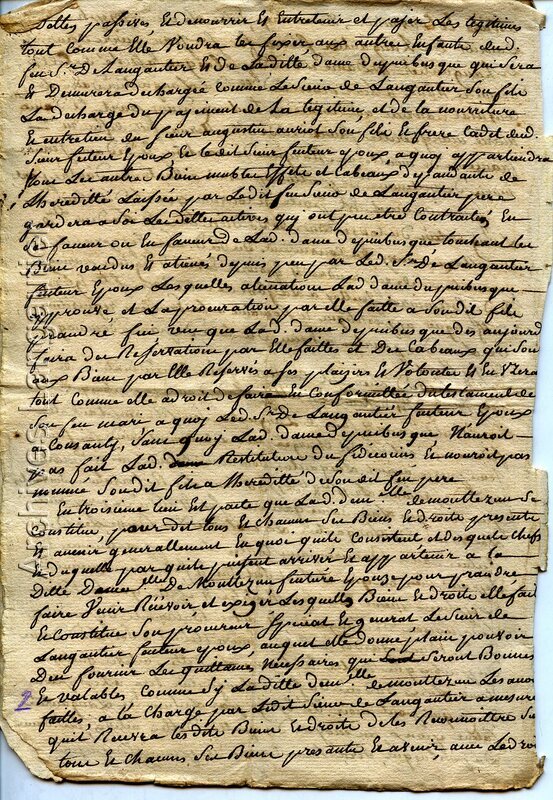 dettes passives et de nourrir et Entretenir et payer Les legitimes
tout comme Elle Voudra les fixer aux autres Enfants dud.
feu Sr. De Laugautier et de Laditte dame depuibusque qui Sera
Et Demurera dechargée comme Le Sieur de Laugautier Son fils
La decharge du payement de La legitime et de la nourriture
Et entretien du Sieur augustin auriot Son fils et frere Cadit dud.
Sieur futeur Epoux Et ledit Sieur futeur epoux, a quoy appartiendra
tous Les autres Biens meubles Effets et Cabeaux dependants de
Lheredité Laissée par Ledit feu Sieur de Laugautier pere
gardera a Soi Les dettes actives qui ont peu etre Contraitées En
Sa faveur ou En faveur de Lad. dame depuibusque touchant les
Biens vendus Et alienés depuis peu par Led. Sr. de Laugautier
futeur Epoux Lesquelles alienations Lad. dame depuibusque
approuve et La procuration par elle faitte a Son dit fils
prandre fin veu que Lad. dame depuibusque des aujourd
faira des Reservations par Elle faittes et Des Cabeaux qui Sont
aux Biens par Elle Reservés a Ses plaisirs et Volontés Et En Usera
tout comme elle a droit de faire En Conformittée du testament de
Son feu mari a quoy Led. Sr. De Laugautier futeur Epoux
a Consanty, Sans quoy Lad. dame depuibusque N'auroit
pas fait Lad. Restitution du fideicomis Et n'auroit pas
nommé Son dit fils a Lheredité de Son dit feu pere
En troisieme lieu Est pacte que Lad. demlle demoutezun Se
Constitue, pour dit tous Et chacuns Ses Biens Et droits presents
Et avenir generallement En quoi qu'ils Consistent et des quels chefs
Et duquelle part quils puissent arriver Et appartenir a la
ditte Damelle de Moutezun future Epouze pour prandre
faire Venir Recevoir et exiger Lesquells Biens Et droits elle fait
Et Constitue Son procureur Special Et general Le Sieur de
Laugautier futeur epoux, auquel elle donne plain pouvoir
D'en fournir Les quittances Necessaires que Seront Bonnes
Et valables Comme Sy Laditte demlle demoutezun Les avoit
faittes, a la Charge par Ledit Sieur de Laugautier a mesure
quil Recevra Les dits Biens Et droits de les Reconnoittre Sur
tous Et Chacuns Ses Biens presants Et avenir, avec Le droit
2